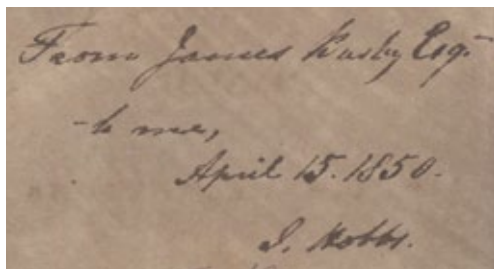 From James Busby Esq.
to me,
April 15. 1850.
J. Hobbs.